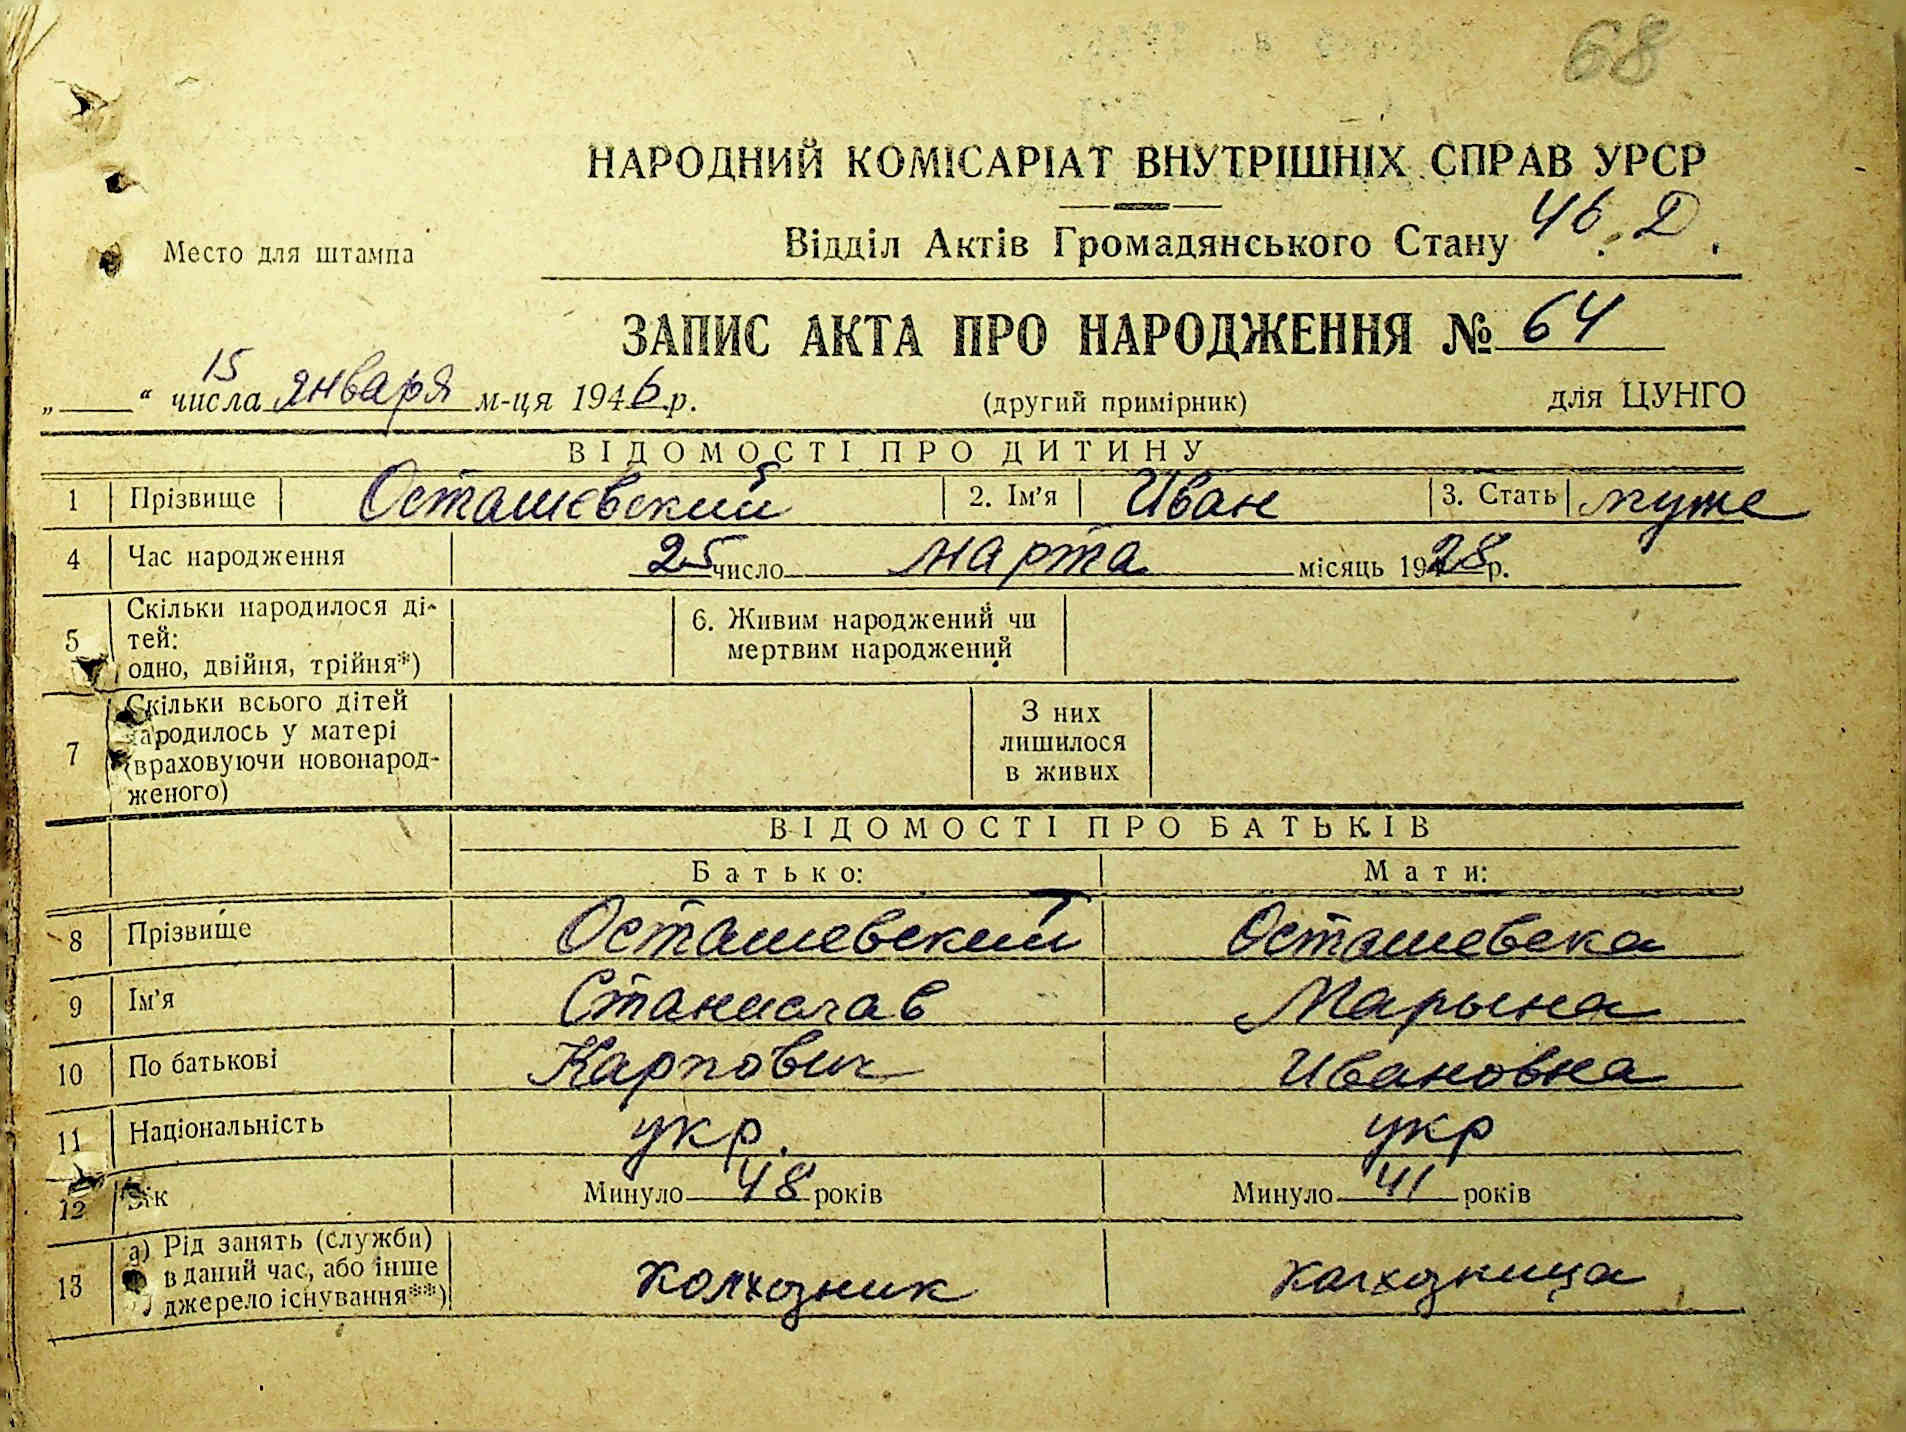 68
НАРОДНИЙ КОМІСАРІАТ ВНУТРІШНІХ СПРАВ УРСР
Место для штампа
Відділ Актів Громадянського Стану 46. Д.
ЗАПИС АКТА ПРО НАРОДЖЕННЯ № 64
„ “ 15 числа января м-ця 1946 р. (другий примірник) для ЦУНГО
ВІДОМОСТІ ПРО ДИТИНУ
1 Прізвище Осташевский 2. Ім'я Иван 3. Стать муже
4 Час народження 25 число марта місяць 1928 р.
5 Скільки народилося ді-
тей:
одно, двійня, трійня*)
6. Живим народжений чи
мертвим народжений
7 Скільки всього дітей
народилось у матері
(враховуючи новонарод-
женого)
З них
лишилося
в живих
ВІДОМОСТІ ПРО БАТЬКІВ
Батько: Мати:
8 Прізвище Осташевский Осташевска
9 Ім'я Станислав Марына
10 По батькові Карпович Ивановна
11 Національність укр. укр
12 Вік Минуло 48 років Минуло 41 років
13 а) Рід занять (служби)
в даний час, або інше
джерело існування**)
колхозник колхозница